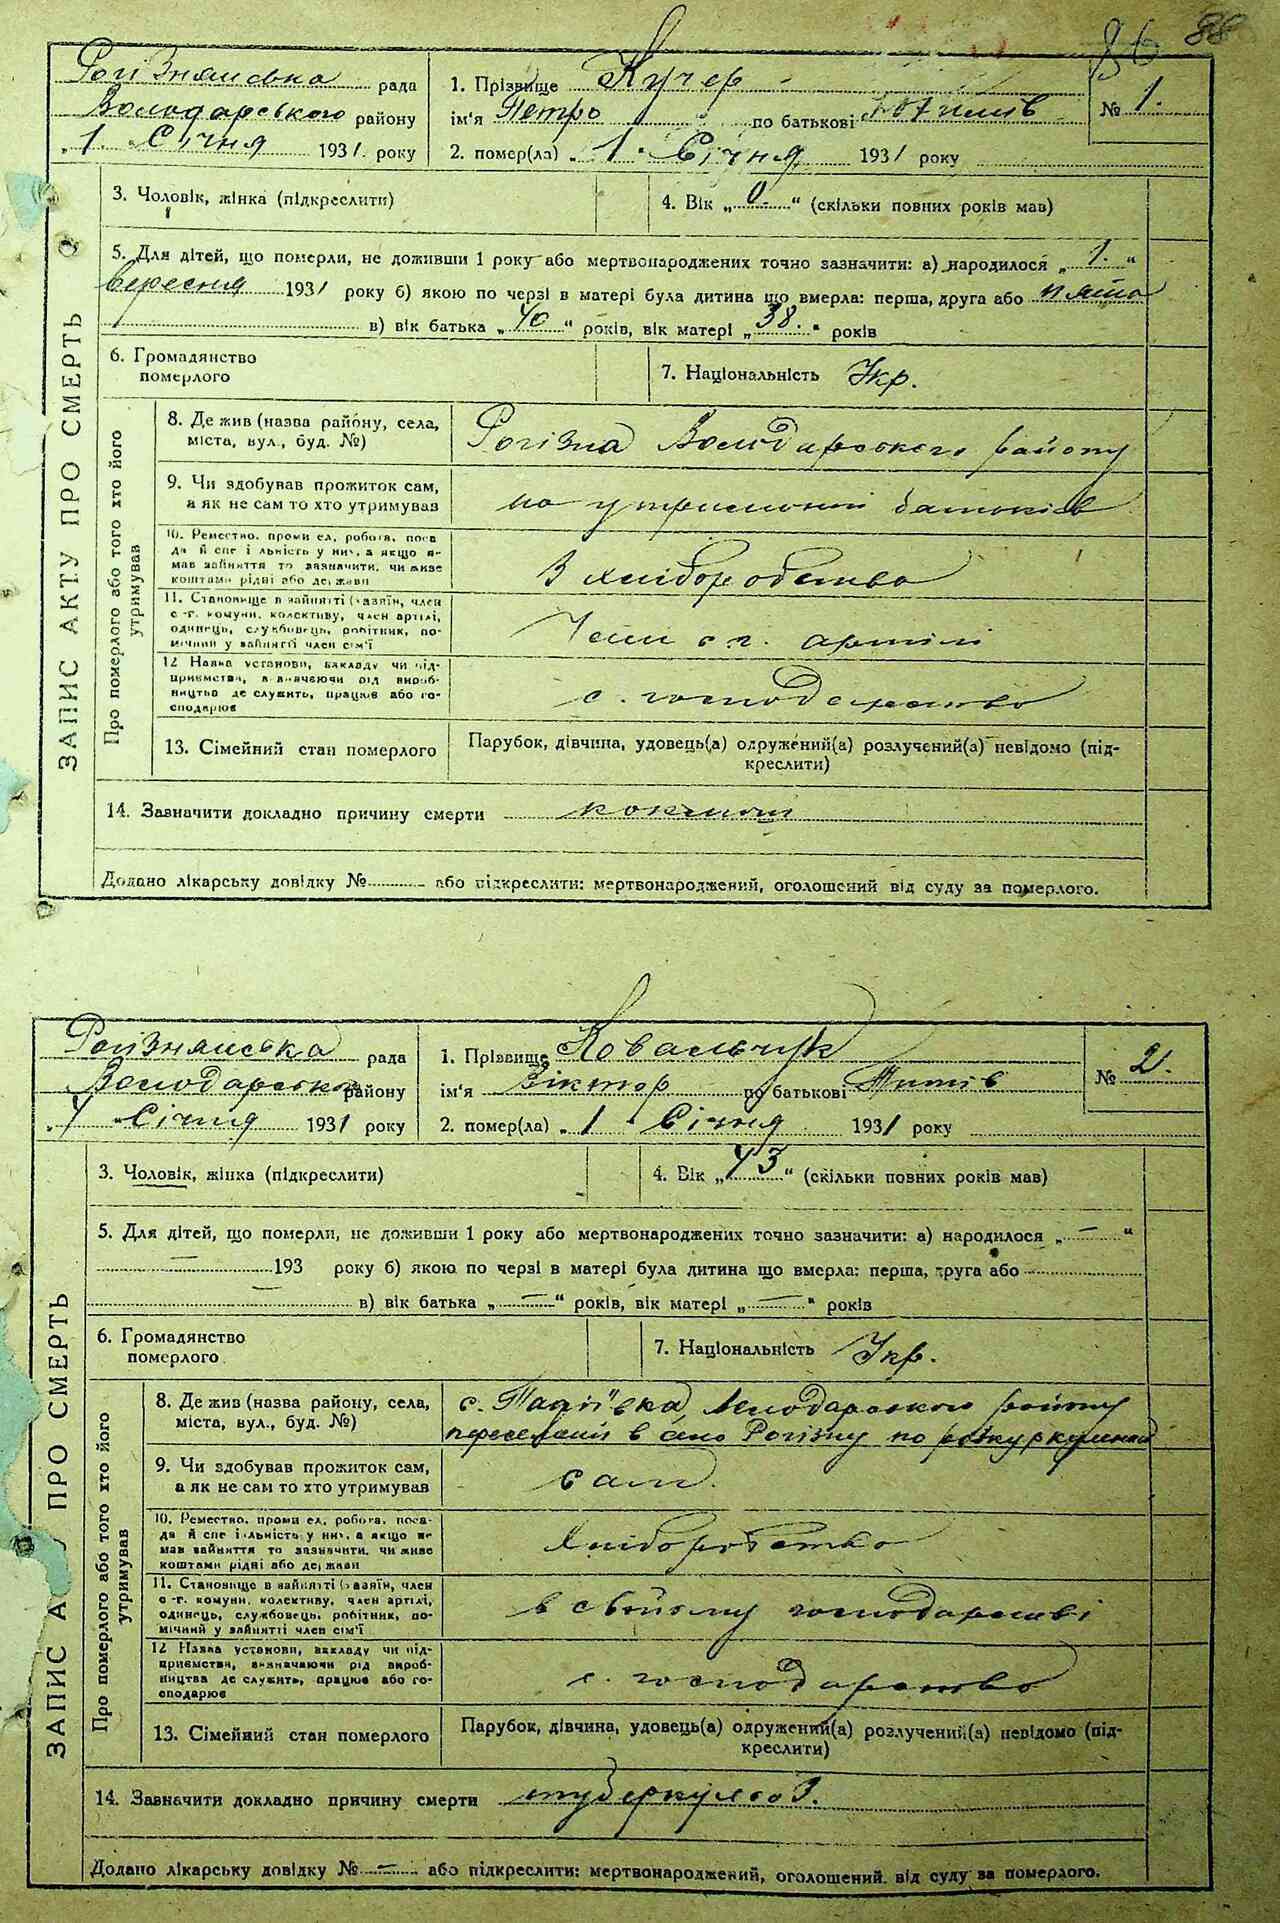 86 88
Рогізнянська рада
Володарського району
„1. Січня 1931. року
1. Прізвище Кучер
ім'я Петро по батькові
№ 1.
2. помер(ла) „1. Січня 1931 року
3. Чоловік, жінка (підкреслити)
4. Вік „0.“ (скільки повних років мав)
5. Для дітей, що померли, не доживши 1 року або мертвонароджених точно зазначити: а) народилося „1.“
вересня 1931 року б) якою по черзі в матері була дитина що вмерла: перша, друга або пята
в) вік батька „40“ років, вік матері „38.“ років
6. Громадянство
померлого
7. Національність Укр.
ЗАПИС АКТУ ПРО СМЕРТЬ
Про померлого або того хто його
утримував
8. Де жив (назва району, села,
міста, вул., буд. №)
Рогізна Володарського району
9. Чи здобував прожиток сам,
а як не сам то хто утримував
на утриманні батьків
10. Ремество, проми ел, робота, поса
да й спе і льність у них, а якщо н-
мав зайняття то зазначити, чи живе
коштами рідні або держави
З хліборобства
11. Становище в зайнятті (хазяїн, член
с-г. комуни, колективу, член артілі,
одинець, службовець, робітник, по-
мічний у зайнятті член сім'ї
Член с. г. артілі
12 Назва установи, закладу чи під-
приємства, зазначаючи рід вироб-
ництва де служить, працює або го-
сподарює
с. господарство
13. Сімейний стан померлого
Парубок, дівчина, удовець(а) одружений(а) розлучений(а) невідомо (під-
креслити)
14. Зазначити докладно причину смерти
Додано лікарську довідку № або підкреслити: мертвонароджений, оголошений від суду за померлого.
Рогізнянська рада
Володарського району
„1 „Січня 1931 року
1. Прізвище Ковальчук
ім'я Віктор по батькові Титів
№ 2.
2. помер(ла) „1 “ Січня 1931 року
3. Чоловік, жінка (підкреслити)
4. Вік „73“ (скільки повних років мав)
5. Для дітей, що померли, не доживши 1 року або мертвонароджених точно зазначити: а) народилося „—“
— 193 року б) якою по черзі в матері була дитина що вмерла: перша, друга або
в) вік батька „—“ років, вік матері „—“ років
6. Громадянство
померлого
7. Національність Укр.
ЗАПИС А У ПРО СМЕРТЬ
Про померлого або того хто його
утримував
8. Де жив (назва району, села,
міста, вул., буд. №)
с. Володарського району
переселений в село Рогізну по
9. Чи здобував прожиток сам,
а як не сам то хто утримував
сам.
10. Ремество, проми ел, робота, поса-
да й спе і льність у них, а якщо не
мав зайняття то зазначити, чи живе
коштами рідні або держави
Хліборобство
11. Становище в зайнятті (хазяїн, член
с-г. комуни, колективу, член артілі,
одинець, службовець, робітник, по-
мічний у зайнятті член сім'ї
в свойому господарстві
12 Назва установи, закладу чи під-
приємства, визначаючи рід вироб-
ництва де служить, працює або го-
сподарює
с. господарство
13. Сімейний стан померлого
Парубок, дівчина, удовець(а) одружений(а) розлучений(а) невідомо (під-
креслити)
14. Зазначити докладно причину смерти туберкульоз.
Додано лікарську довідку № — або підкреслити: мертвонароджений, оголошений від суду за померлого.